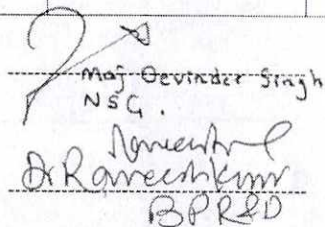 Maj Devinder Singh
NSG.
Dr Raneeshkumar
BPR&D